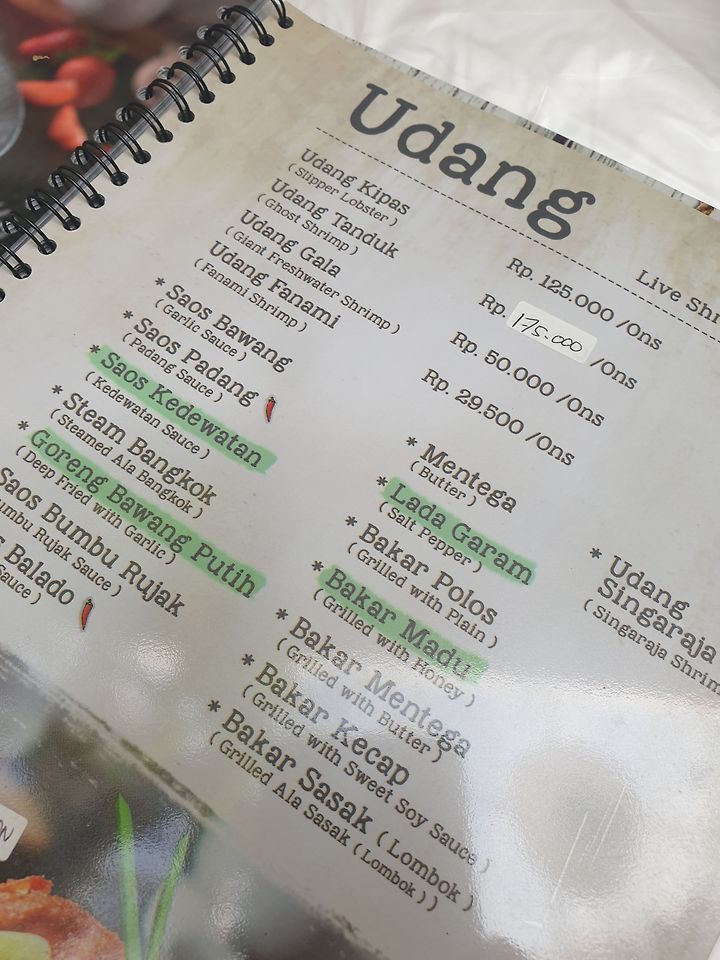 Udang
Live
Udang Kipas
( Slipper Lobster )
Rp. 125.000 /Ons
Udang Tanduk
( Ghost Shrimp )
Rp. 175.000 /Ons
Udang Gala
( Giant Freshwater Shrimp )
Rp. 50.000 /Ons
Udang Fanami
( Fanami Shrimp )
Rp. 29.500 /Ons
* Saos Bawang
( Garlic Sauce )
* Saos Padang
( Padang Sauce )
* Saos Kedewatan
( Kedewatan Sauce )
* Steam Bangkok
( Steamed Ala Bangkok )
* Goreng Bawang Putih
( Deep Fried with Garlic )
Saos Bumbu Rujak
Bumbu Rujak Sauce )
Balado
Sauce )
* Mentega
( Butter )
* Lada Garam
( Salt Pepper )
* Bakar Polos
( Grilled with Plain )
* Bakar Madu
( Grilled with Honey )
* Bakar Mentega
( Grilled with Butter )
* Bakar Kecap
( Grilled with Sweet Soy Sauce )
* Bakar Sasak ( Lombok )
( Grilled Ala Sasak ( Lombok ) )
* Udang
Singaraja
( Singaraja Shrim